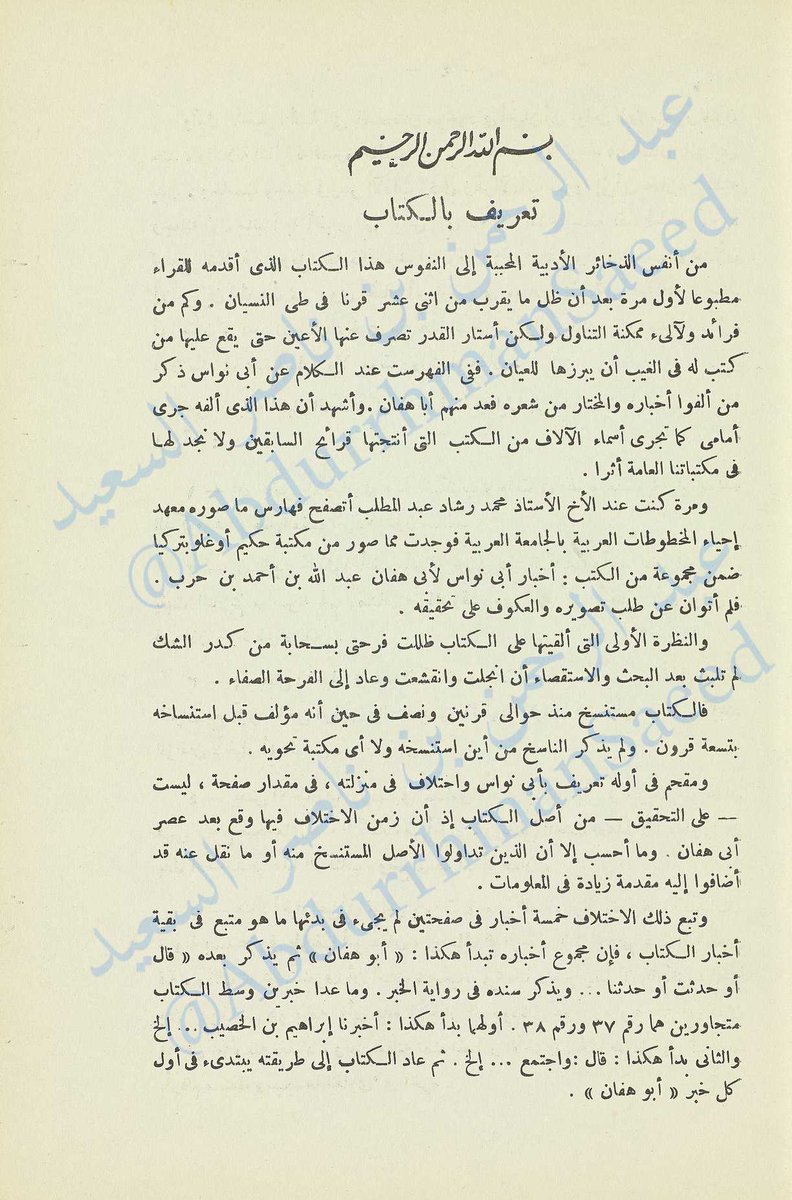 بسم الله الرحمن الرحيم
تعريف بالكتاب
من أنفس الذخائر الأدبية المحببة إلى النفوس هذا الكتاب الذى أقدمه للقراء
مطبوعا لأول مرة بعد أن ظل ما يقرب من اثنى عشر قرنا فى طى النسيان . وكم من
فرائد ولآلىء ممكنة التناول ولكن أستار القدر تصرف عنها الأعين حتى يقع عليها من
كتب له فى الغيب أن يبرزها للعيان . ففى الفهرست عند الكلام عن أبى نواس ذكر
من ألفوا أخباره والمختار من شعره فعد منهم أبا هفان . وأشهد أن هذا الذى ألفه جرى
أمامى كما تجرى أسماء الآلاف من الكتب التى أنتجتها قرائح السابقين ولا نجد لها
فى مكتباتنا العامة أثرا .
ومرة كنت عند الأخ الأستاذ محمد رشاد عبد المطلب أتصفح فهارس ما صوره معهد
إحياء المخطوطات العربية بالجامعة العربية فوجدت مما صور من مكتبة حكيم أوغلو بتركيا
ضمن مجموعة من الكتب : أخبار أبى نواس لأبى هفان عبد الله بن أحمد بن حرب .
فلم أتوان عن طلب تصويره والعكوف على تحقيقه .
والنظرة الأولى التى ألقيتها على الكتاب ظللت فرحتى بسحابة من كدر الشك
لم تلبث بعد البحث والاستقصاء أن انجلت وانقشعت وعاد إلى الفرحة الصفاء .
فالكتاب مستنسخ منذ حوالى قرنين ونصف فى حين أنه مؤلف قبل استنساخه
بتسعة قرون . ولم يذكر الناسخ من أين استنسخه ولا أى مكتبة تحويه .
ومقحم فى أوله تعريف بأبى نواس واختلاف فى منزلته ، فى مقدار صفحة ، ليست
— على التحقيق — من أصل الكتاب إذ أن زمن الاختلاف فيها وقع بعد عصر
أبى هفان . وما أحسب إلا أن الذين تداولوا الأصل المستنسخ منه أو ما نقل عنه قد
أضافوا إليه مقدمة زيادة فى المعلومات .
وتبع ذلك الاختلاف خمسة أخبار فى صفحتين لم يجىء فى بدئها ما هو متبع فى بقية
أخبار الكتاب ، فإن مجموع أخباره تبدأ هكذا : « أبو هفان » ثم يذكر بعده « قال
أو حدثت أو حدثنا ... ويذكر سنده فى رواية الخبر . وما عدا خبرين وسط الكتاب
متجاورين هما رقم ٣٧ ورقم ٣٨ . أولهما بدأ هكذا : أخبرنا إبراهيم بن الخصيب ... إلخ
والثانى بدأ هكذا : قال : واجتمع ... إلخ . ثم عاد الكتاب إلى طريقته يبتدىء فى أول
كل خبر « أبو هفان » .
عبد الرحمن بن ناصر السعيد
@Abdurrhmansaeed
عبد الرحمن بن ناصر السعيد
@Abdurrhmansaeed